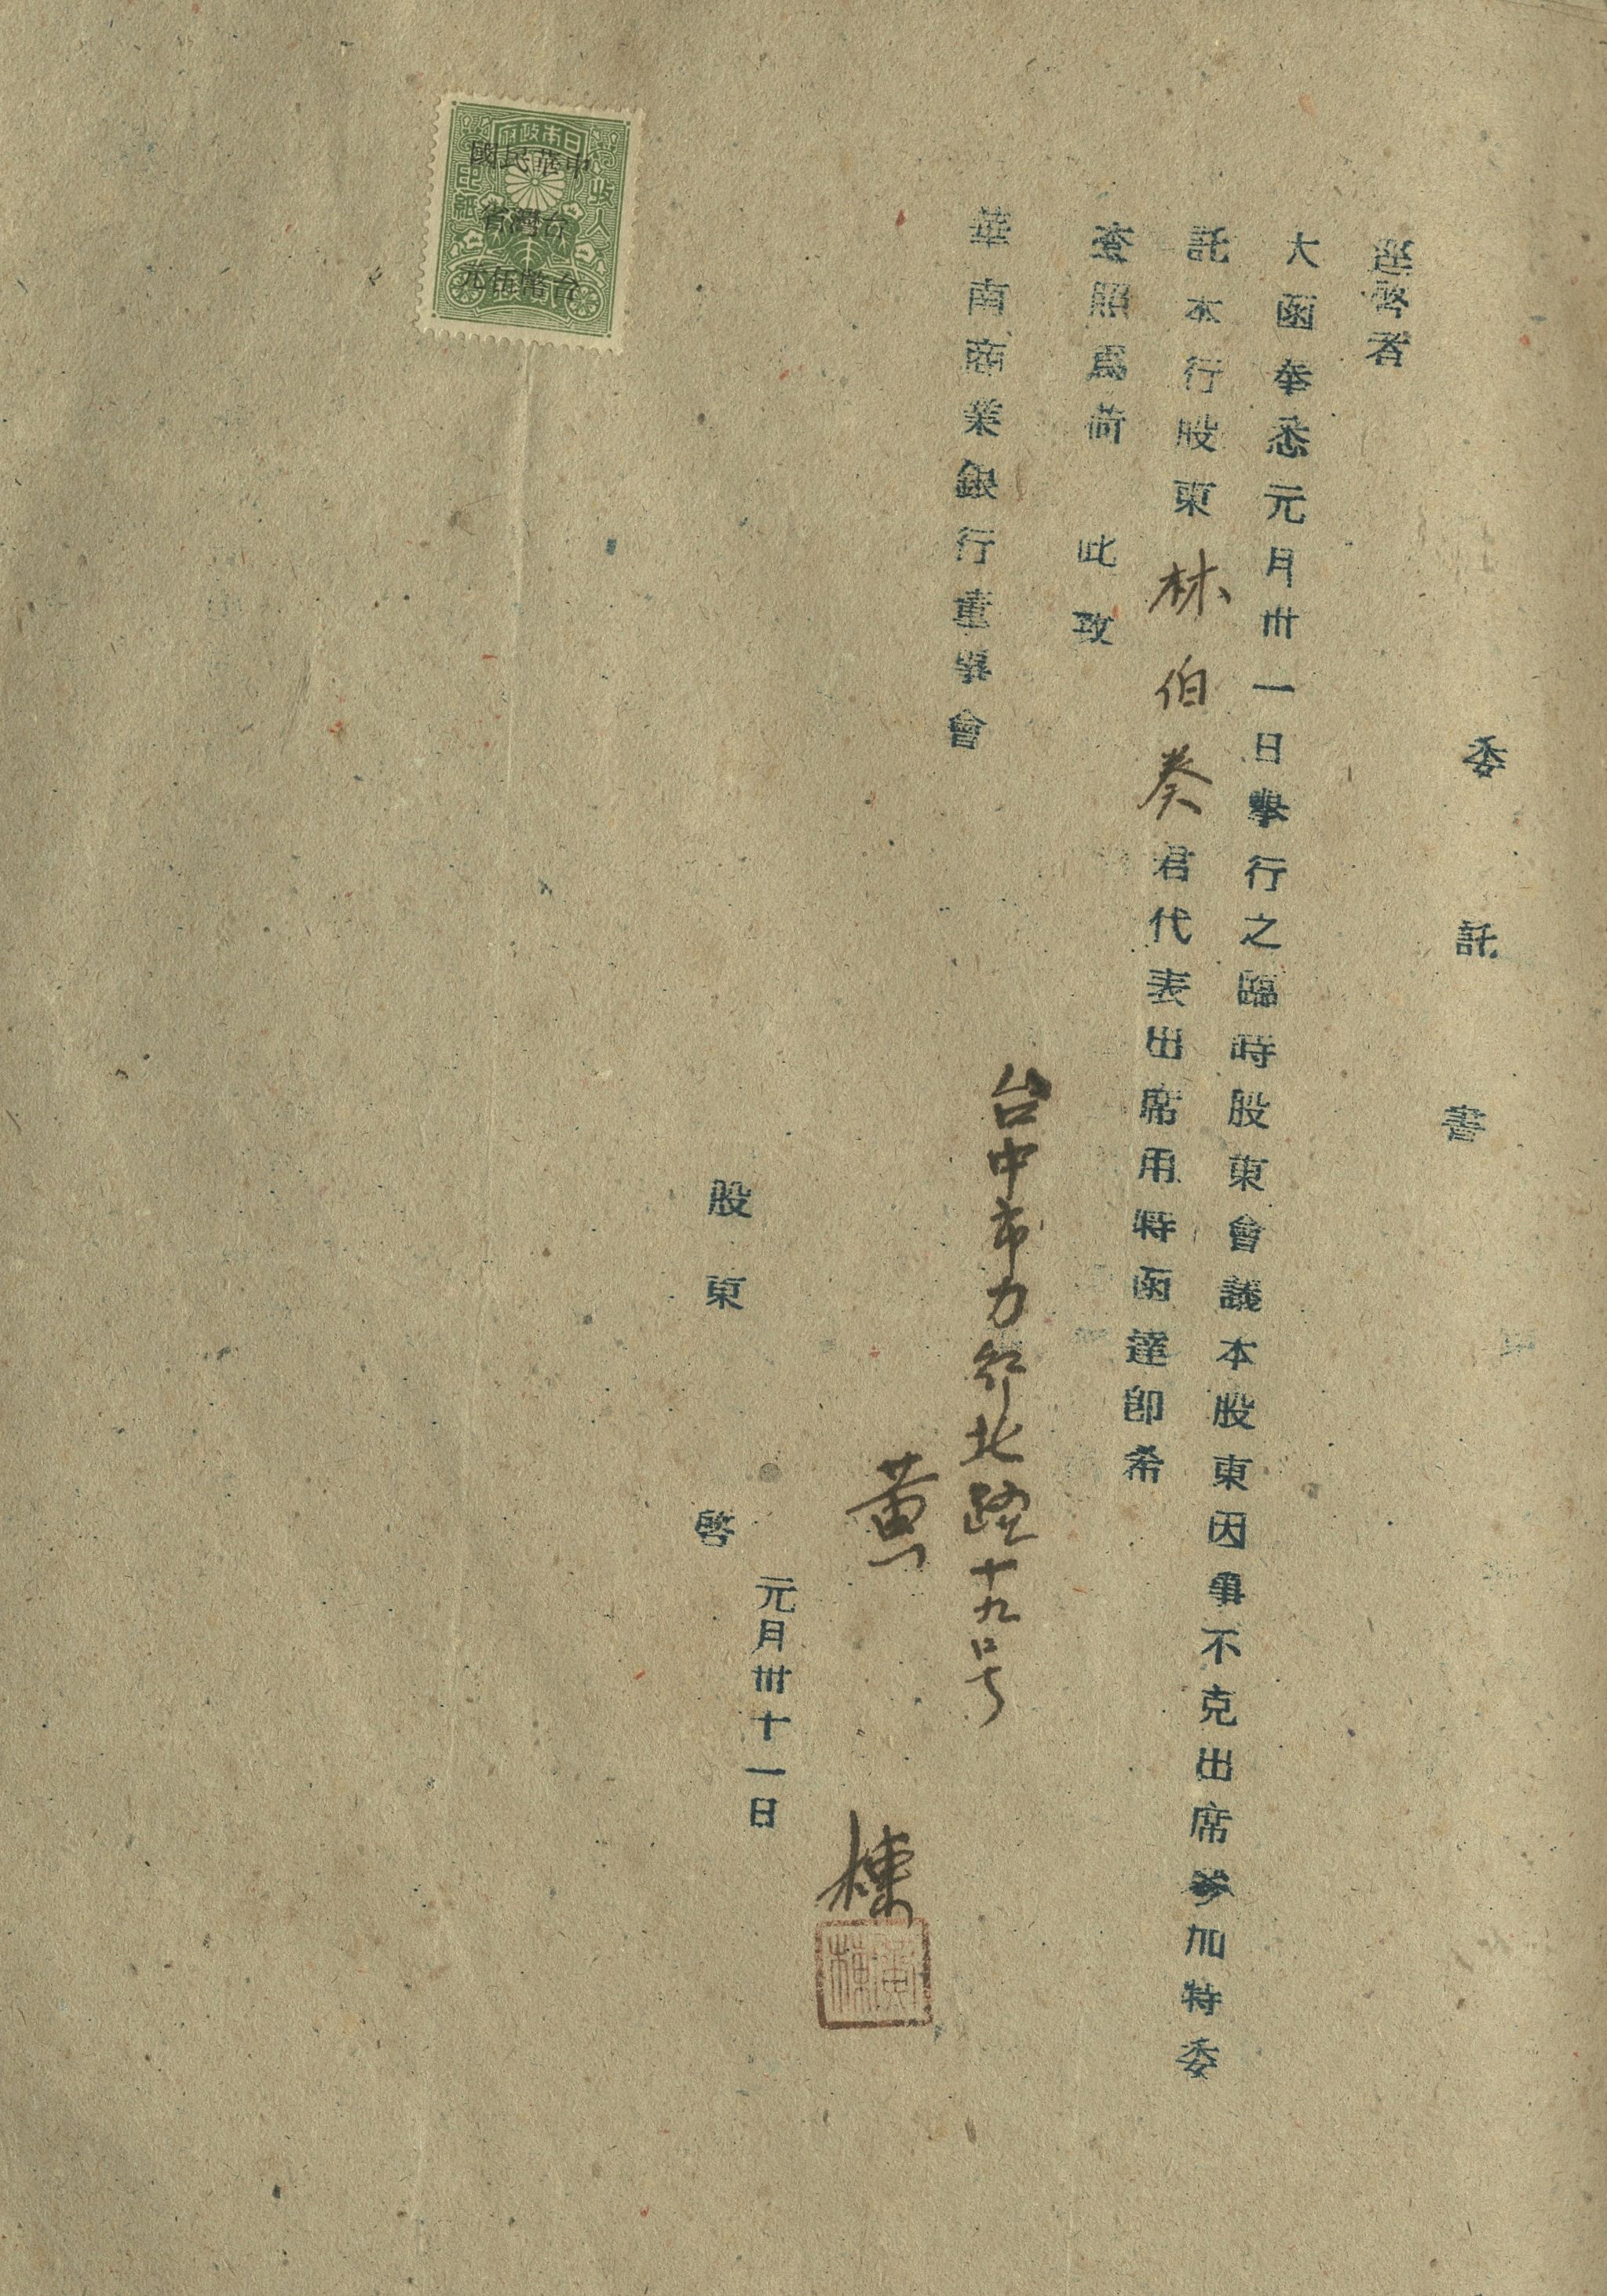 委託書
逕啓者
大函奉悉元月卅一日擧行之臨時股東會議本股東因事不克出席參加特委
託本行股東林伯奏君代表出席用特函達卽希
查照爲荷 此致
華南商業銀行董事會
台中市力行北路十九号
黄棟
黃棟
元月卅十一日
股東 啓
日本政府
收入印紙
中華民國
台灣省
台幣伍元